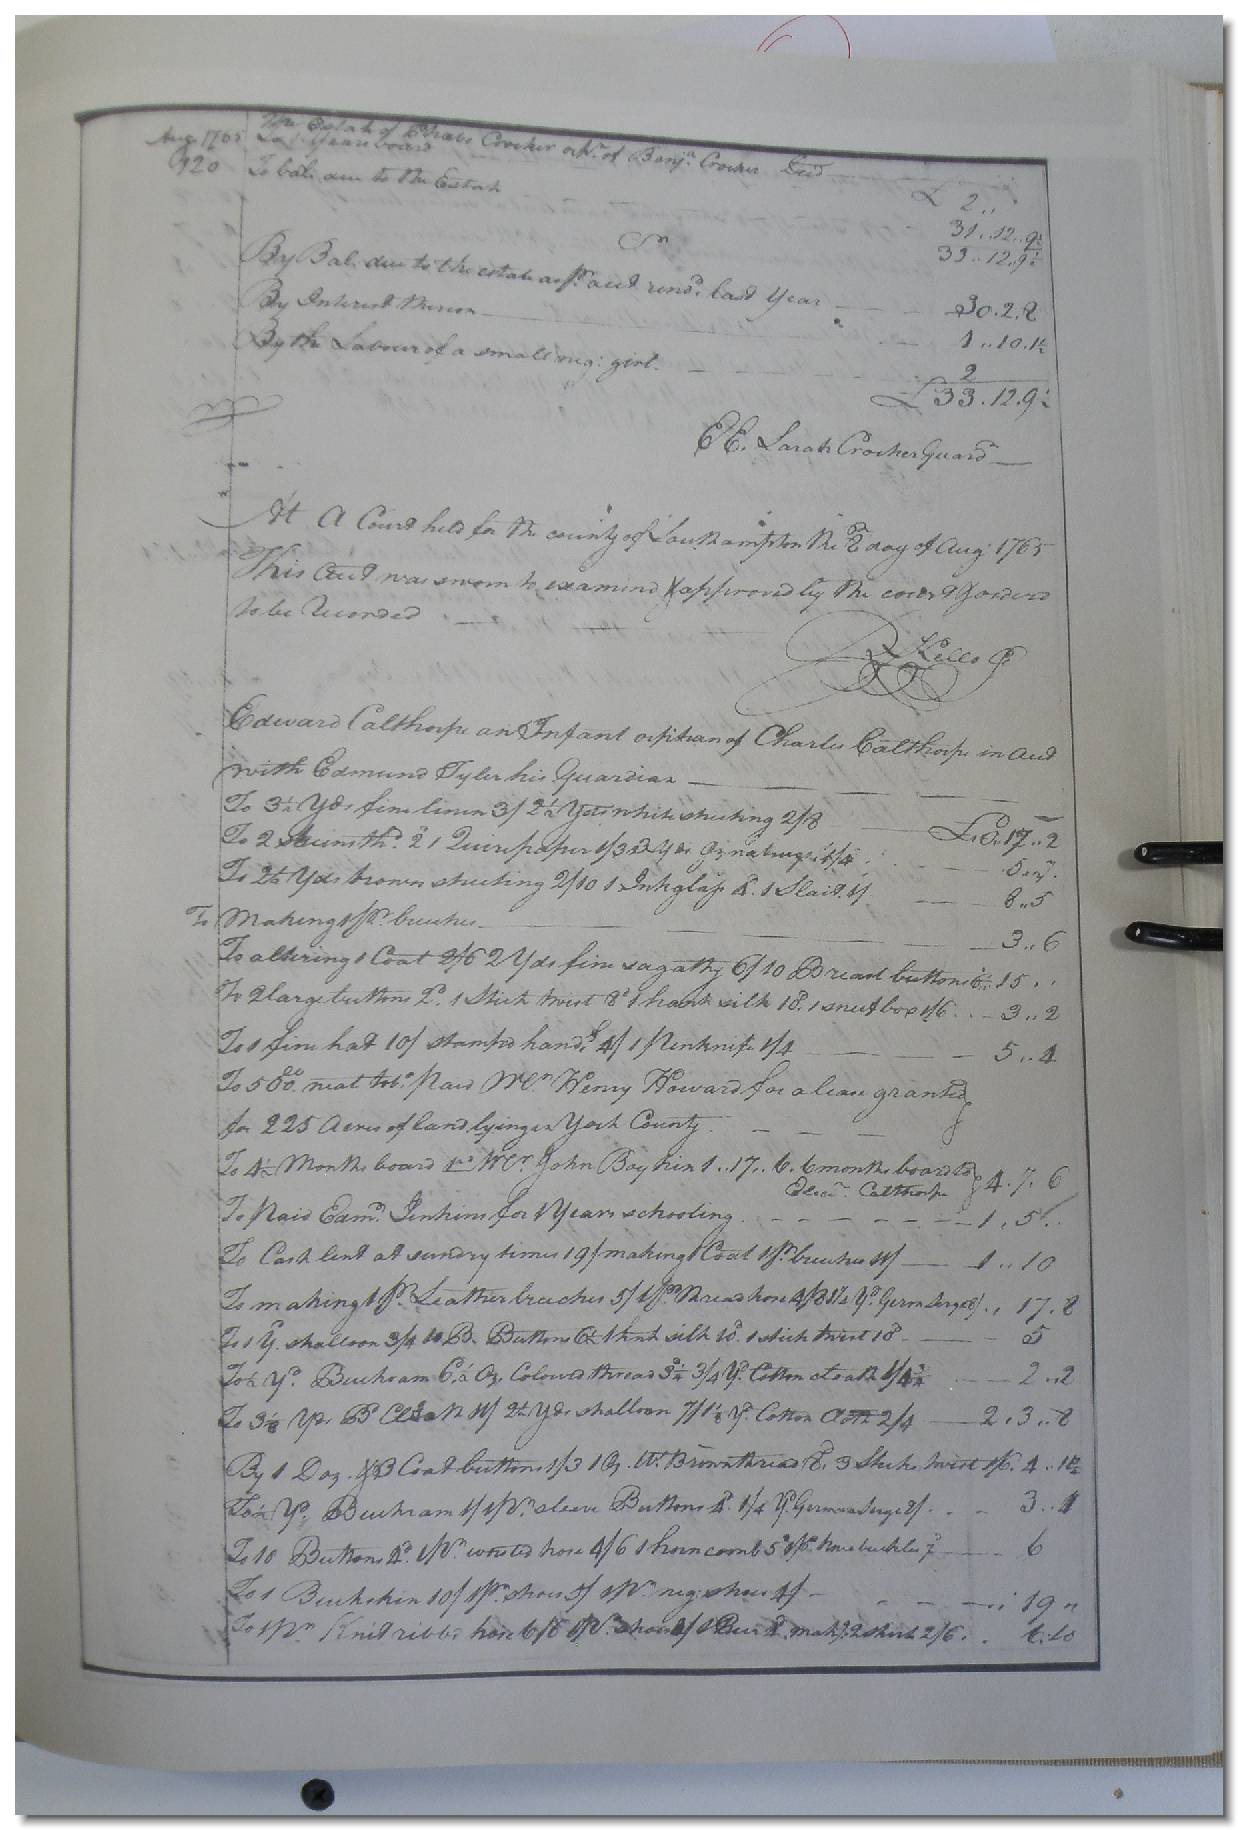 The Estate of Crocker orpn. of Benjn. Crocker Decd
Aug. 1765 To 1 Years board £ 2..
To bal. due to the Estate 31..12..9½
33..12..9½
Cr
By Bal. due to the estate as pr. acct rend. last Year 30.2.8
By Interest thereon 1..10.1½
By the Labour of a small neg: girl. 2
£ 33.12.9½
EE. Sarah Crocker Guardn
At A Court held for the county of Southampton the 8 day of Aug: 1765
This acct was sworn to examind & approved by the court & orderd
to be Recorded
R Kello
Edward Calthorpe an Infant orphan of Charles Calthorpe in acct
with Edmund Tyler his Guardian
To 3½ Yds fine linen 3/ 2½ Yds white sheeting 2/8 17..2
To 2 1 Quire paper 1/3 Yds Oznabrugs 1/4
To 2½ Yds brown sheeting 2/10 1 Inkglass 8. 1 Slait 8..5
To Making 1 pr. breeches 3..6
To altering 1 Coat 2/6 2 Yds fine sagathy 6/ 10 Breast buttons 15..
To 2 large buttons 2d. 1 Stick twist 8d 1 hank silk 10. 1 snuf box 1/6 3..2
To 1 fine hat 10/ stamped handf. 4/ 1 Penknife 1/4 5..4
To 500 neat tobo. Paid Mr. Henry Howard for a lease granted
for 225 Acres of land lying in York County
To 4½ Months board Mr. John Boykin 1..17..6. 6 months board to
Calthorpe 4.7.6
To Paid Edmd. Jenkins for 1 Years schooling 1.5..
To Cash lent at sundry times 19/ making 1 Coat 1 pr. breeches 11/ 1..10
To making 1 pr. Leather breeches 5/ 1 pr. thread hose 4/8 1¼ Yd. Germ Serge 17.8
To 1 Y. shalloon 3/4 10 B. Buttons 1 hank silk 10. 1 stick twist 10. 5
To ½ Yd. Buckram Oz. Colourd thread 3/4 Yd. Cotton cloath 2..2
To 3⅛ Yds Bd Cloath 11/ 2½ Yds shalloon 7/ 1⅛ Yd. Cotton cloth 2/4 2.3..8
By 1 Doz. Coat buttons 1/3 1 Oz. W. Brown thread 8. 3 Sticks twist 1/6.
To ½ Yd. Buckram 1/ 1 pr. sleeve Buttons 1/4 Yd. German Serge 3..4
To 10 Buttons 1 pr. worsted hose 4/6 1 horn comb 5d 1 pr. knee buckles 7 6
To 1 Buckskin 10/ 1 pr. shoes 5/ 1 pr. neg: shoes 4/ 19
To 1 pr. Knit ribbd hose 6/8 1 pr. shoes makg. 2 shirts 2/6.